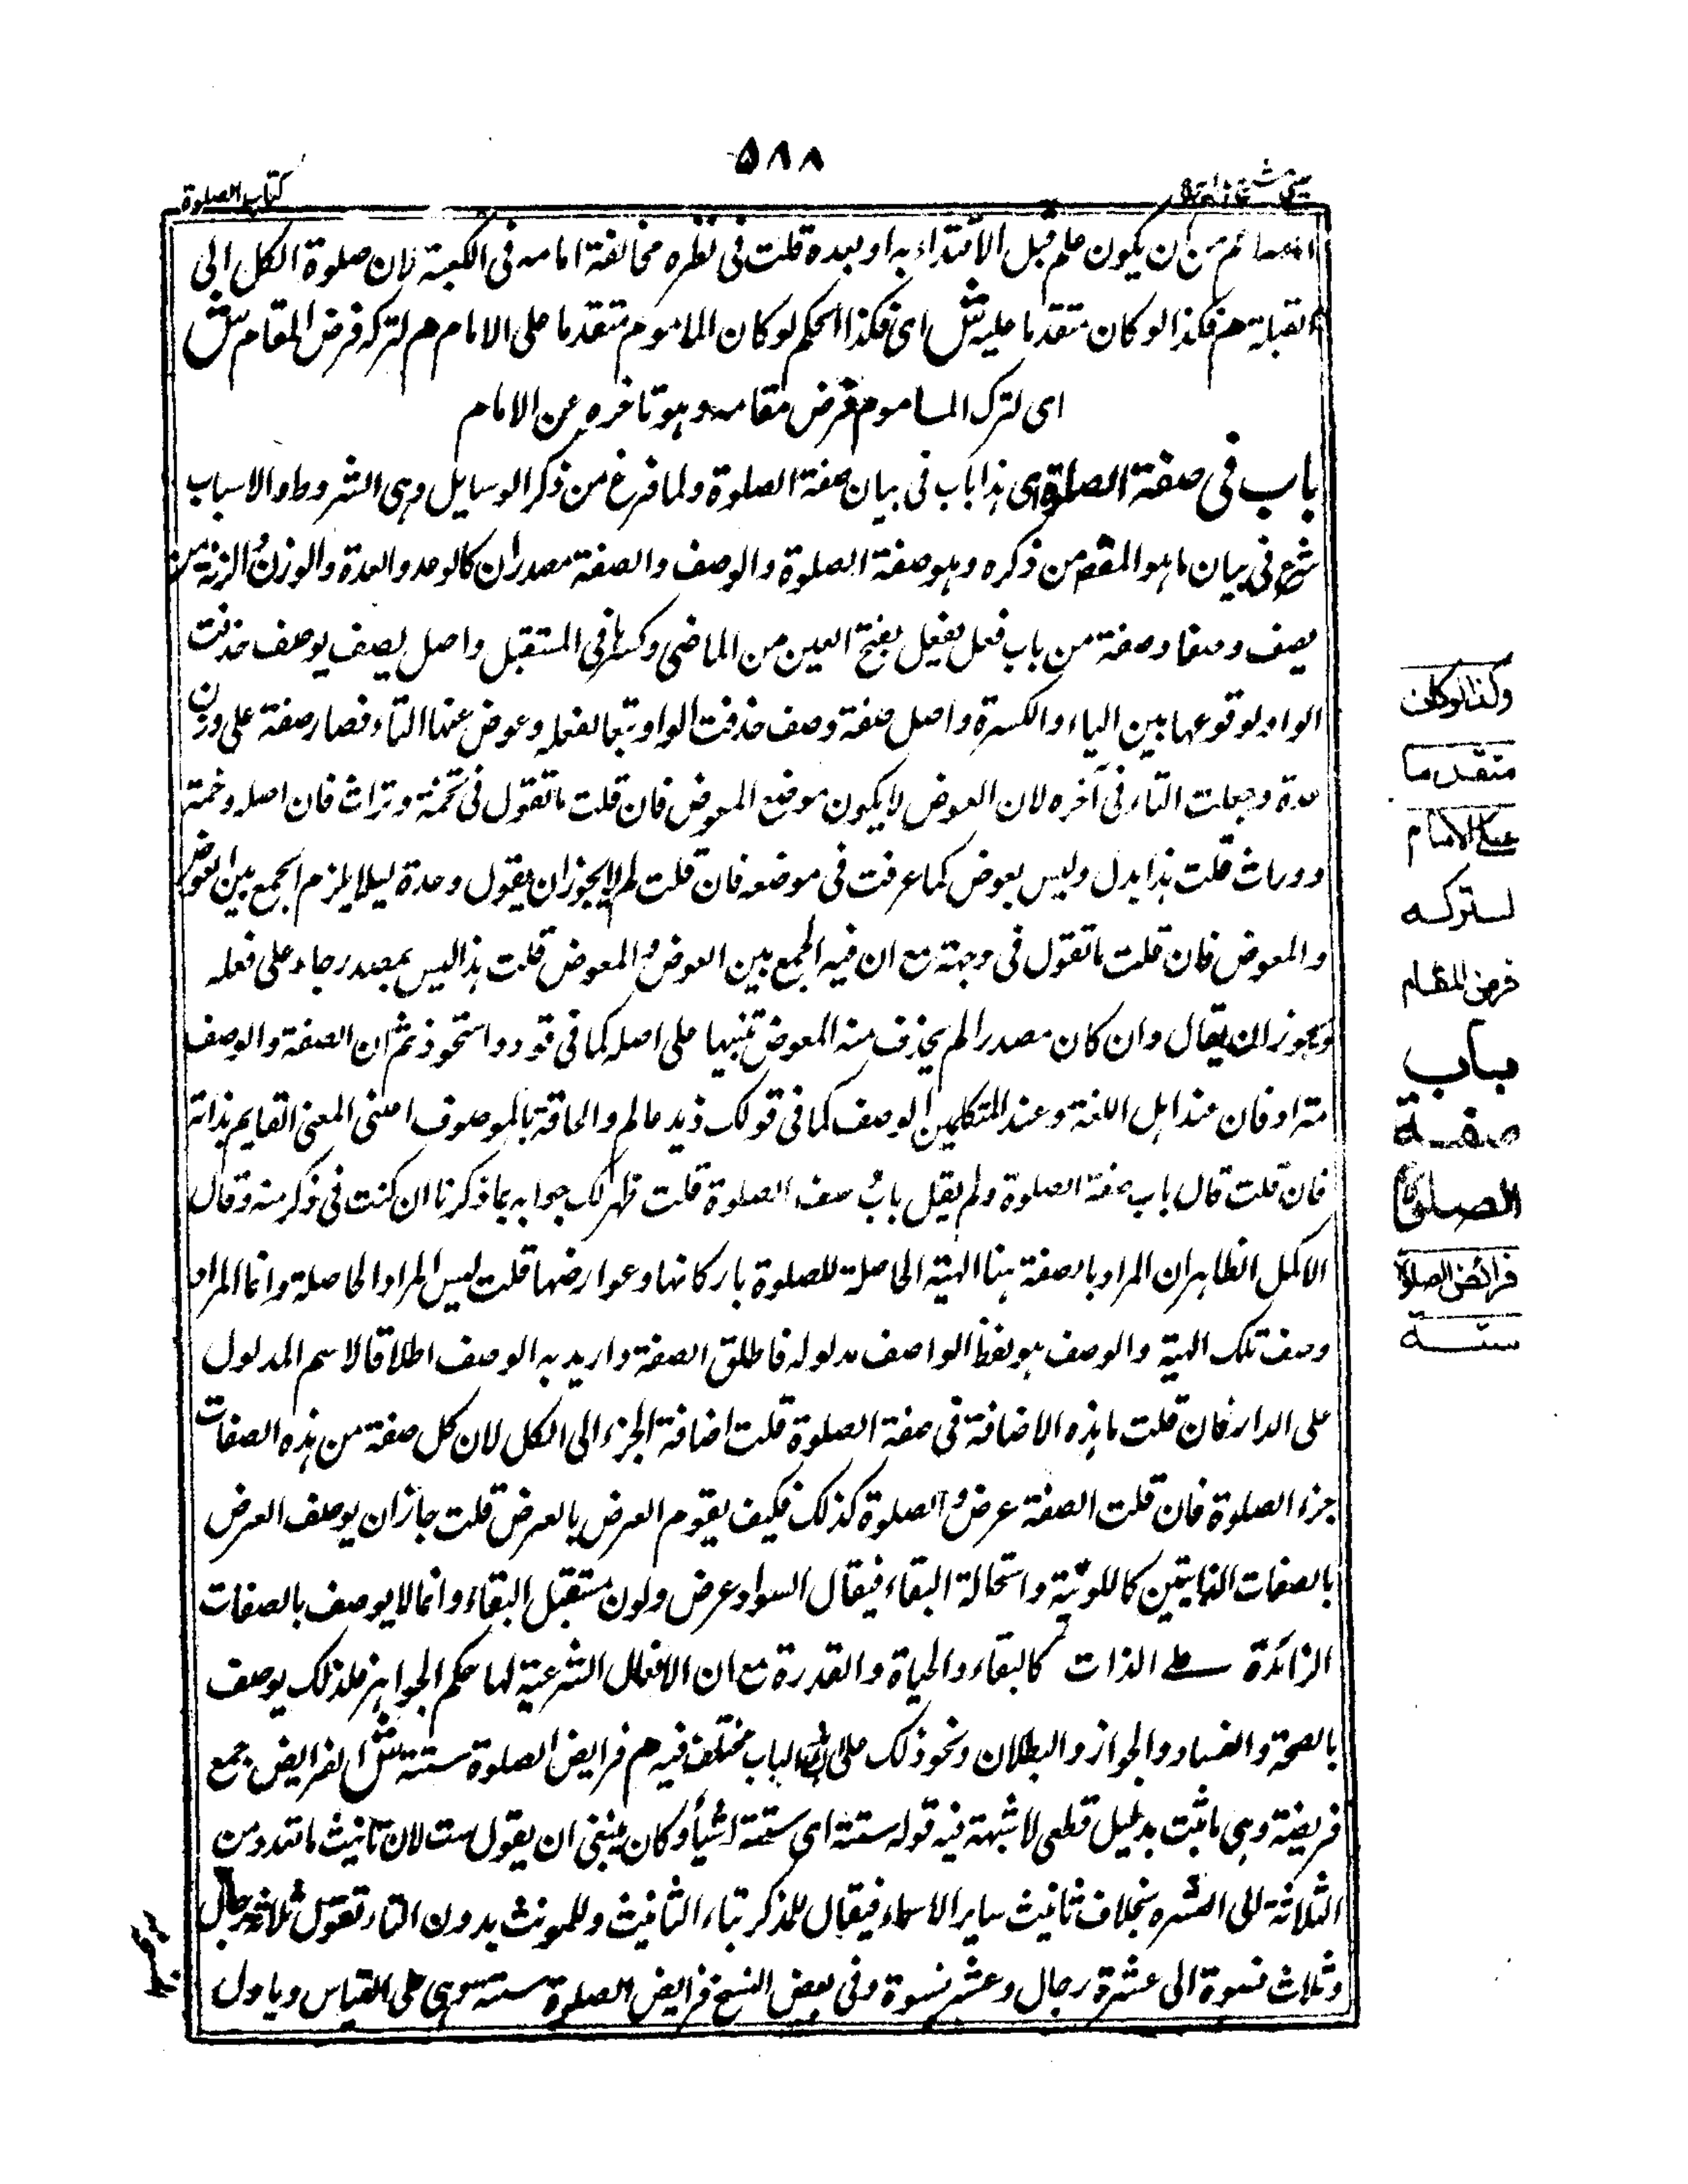 ٥٨٨
كتاب الصلوة
من ان يكون علم قبل الاقتداء به او بعده قلت فى نظره مخالفة امامه فى الكعبة لان صلوة الكل الى
القبلة هم فكذا لو كان متقدما عليه ش اى فكذا الحكم لو كان الماموم متقدما على الامام هم لتركه فرض المقام ش
اى لترك الماموم فرض مقامه وهو تاخره عن الامام
باب فى صفة الصلوة اى هذا باب فى بيان صفة الصلوة ولما فرغ من ذكر الوسايل وهى الشروط والاسباب
شرع فى بيان ما هو المقصم من ذكره وهو صفة الصلوة والوصف والصفة مصدران كالوعد والعدة والوزن والزنة من
يصف وصفا وصفة من باب فعل يفعل بفتح العين من الماضى وكسرها فى المستقبل واصل يصف يوصف حذفت
الواو لوقوعها بين الياء والكسرة واصل صفة وصف حذفت الواو تبعا لفعله وعوض عنها التاء فصار صفة على وزن
عدة وجعلت التاء فى آخره لان العوض لا يكون موضع المعوض فان قلت ما تقول فى تخمة وتراث فان اصله وخمة
ووراث قلت هذا بدل وليس بعوض كما عرفت فى موضعه فان قلت لم لا يجوز ان يقول وعدة ليلا يلزم الجمع بين العوض
والمعوض فان قلت ما تقول فى وجهة مع ان فيه الجمع بين العوض والمعوض قلت هذا ليس بمصدر جاء على فعله
ويجوز ان يقال وان كان مصدرا لم يحذف منه المعوض تنبيها على اصله كما فى قود واستحوذ ثم ان الصفة والوصف
مترادفان عند اهل اللغة وعند المتكلمين الوصف كما فى قولك زيد عالم والحاقة بالموصوف اعنى المعنى القايم بذاته
فان قلت قال باب صفة الصلوة ولم يقل باب وصف الصلوة قلت ظهر لك جوابه بما ذكرنا ان كنت فى ذكر منه وقال
الاكمل الظاهر ان المراد بالصفة هنا الهيئة الحاصلة للصلوة باركانها وعوارضها قلت ليس المراد الحاصلة وانما المراد
وصف تلك الهيئة والوصف هو لفظ الواصف مدلوله فاطلق الصفة واريد به الوصف اطلاقا لاسم المدلول
على الدار فان قلت ما هذه الاضافة فى صفة الصلوة قلت اضافة الجزء الى الكل لان كل صفة من هذه الصفات
جزء الصلوة فان قلت الصفة عرض والصلوة كذلك فكيف يقوم العرض بالعرض قلت جاز ان يوصف العرض
بالصفات الذاتيتين كاللونية واستحالة البقاء فيقال السواد عرض ولون مستقبل البقاء وانما لا يوصف بالصفات
الزائدة على الذات كالبقاء والحياة والقدرة مع ان الافعال الشرعية لها حكم الجواهر فلذلك يوصف
بالصحة والفساد والجواز والبطلان ونحو ذلك على ان الباب مختلف فيه هم فرايض الصلوة ستة ش الفرايض جمع
فريضة وهى ما ثبت بدليل قطعى لا شبهة فيه قوله ستة اى ستة اشياء وكان ينبغى ان يقول ست لان تانيث ما تعدد من
الثلاثة الى العشره بخلاف ثانيث ساير الاسماء فيقال للمذكر بتاء الثانيث وللمونث بدون التاء تقول ثلاثة رجال
وثلاث نسوة الى عشرة رجال وعشر نسوة وفى بعض النسخ فرايض الصلوة ست وهى على القياس وياول
وكذا لو كان
متقدما
على الامام
لتركه
فرض المقام
باب
صفة
الصلوة
فرائض الصلوة
ستة